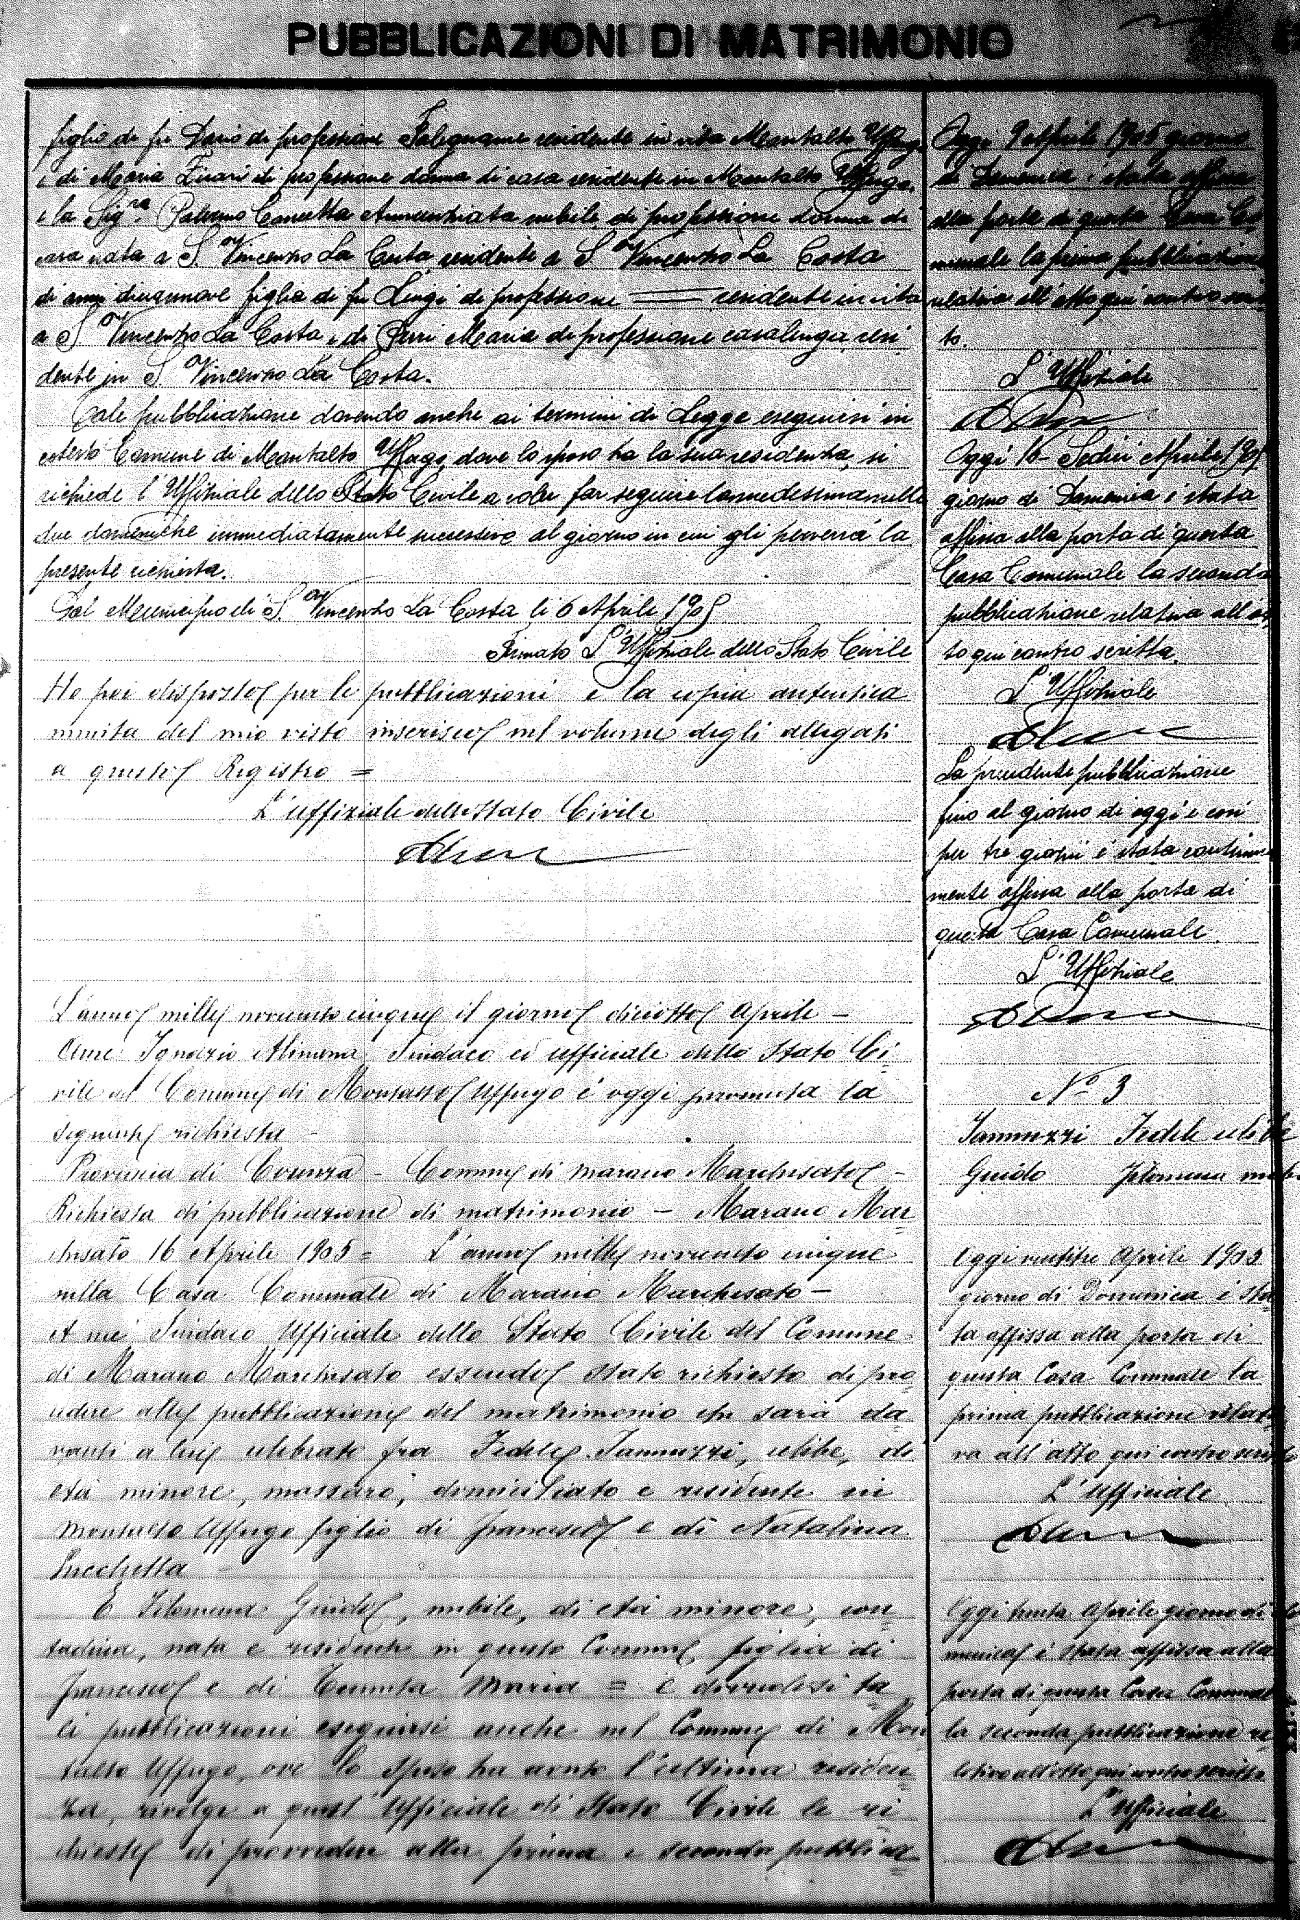 PUBBLICAZIONI DI MATRIMONIO
figlio di fu Dario di professione Falegname residente in vita Montalto Uffugo
e di Maria di professione donna di casa residente in Montalto Uffugo
e la Sig.ra Palermo Concetta Annunziata nubile di professione donna di
casa nata a S. Vincenzo La Costa residente a S. Vincenzo La Costa
di anni diciannove figlia di fu Luigi di professione residente in vita
a S. Vincenzo La Costa e di Perri Maria di professione casalinga resi
dente in S. Vincenzo La Costa.
Tale pubblicazione dovendo anche ai termini di Legge eseguirsi in
cotesto Comune di Montalto Uffugo, dove lo sposo ha la sua residenza, si
richiede l'Uffiziale dello Stato Civile a voler far seguire la medesima nelle
due domeniche immediatamente successive al giorno in cui gli perverrà la
presente richiesta.
Dal Municipio di S. Vincenzo La Costa li 6 Aprile 1905
Firmato L'Uffiziale dello Stato Civile
Ho poi disposto per le pubblicazioni e la copia autentica
munita del mio visto inserisco nel volume degli allegati
a questo Registro =
L'uffiziale dello Stato Civile
L'anno mille novecento cinque il giorno diciotto Aprile -
A me Ignazio Alimena Sindaco ed ufficiale dello Stato Ci-
vile del Comune di Montalto Uffugo è oggi pervenuta la
seguente richiesta -
Provincia di Cosenza - Comune di Marano Marchesato -
Richiesta di pubblicazione di matrimonio - Marano Mar-
chesato 16 Aprile 1905 = L'anno mille novecento cinque
nella Casa Comunale di Marano Marchesato -
A me Sindaco Ufficiale dello Stato Civile del Comune
di Marano Marchesato essendo stato richiesto di pro-
cedere alle pubblicazioni del matrimonio che sarà da
vanti a lui celebrato fra Fedele Iannuzzi, celibe, di
età minore, massaro, domiciliato e residente in
Montalto Uffugo figlio di Francesco e di Natalina
Lucchetta
E Filomena Guido, nubile, di età minore, con
tadina, nata e residente in questo Comune figlia di
Francesco e di Maria = e dovendosi ta
li pubblicazioni eseguirsi anche nel Comune di Mon
talto Uffugo, ove lo sposo ha avuto l'ultima residen
za, rivolge a quest'Ufficiale di Stato Civile la ri
chiesta di provvedere alla prima e seconda pubblica
Oggi 9 Aprile 1905 giorno
di Domenica è stata affissa
alla porta di questa Casa Co-
munale la prima pubblicazione
relativa all'atto qui contro scrit
to.
L'Uffiziale
Oggi 16 Sedici Aprile 1905
giorno di Domenica è stata
affissa alla porta di questa
Casa Comunale la seconda
pubblicazione relativa all'at-
to qui contro scritta.
L'Uffiziale
La precedente pubblicazione
fino al giorno di oggi e così
per tre giorni è stata continua
mente affissa alla porta di
questa Casa Comunale.
L'Uffiziale
No 3
Iannuzzi Fedele celibe
Guido Filomena nubi
Oggi ventitre Aprile 1905
giorno di Domenica è sta
ta affissa alla porta di
questa Casa Comunale la
prima pubblicazione relati
va all'atto qui contro scritto
L'Ufficiale
Oggi trenta Aprile giorno di Do
menica è stata affissa alla
porta di questa Casa Comunale
la seconda pubblicazione re
lativa all'atto qui contro scritto
L'Ufficiale